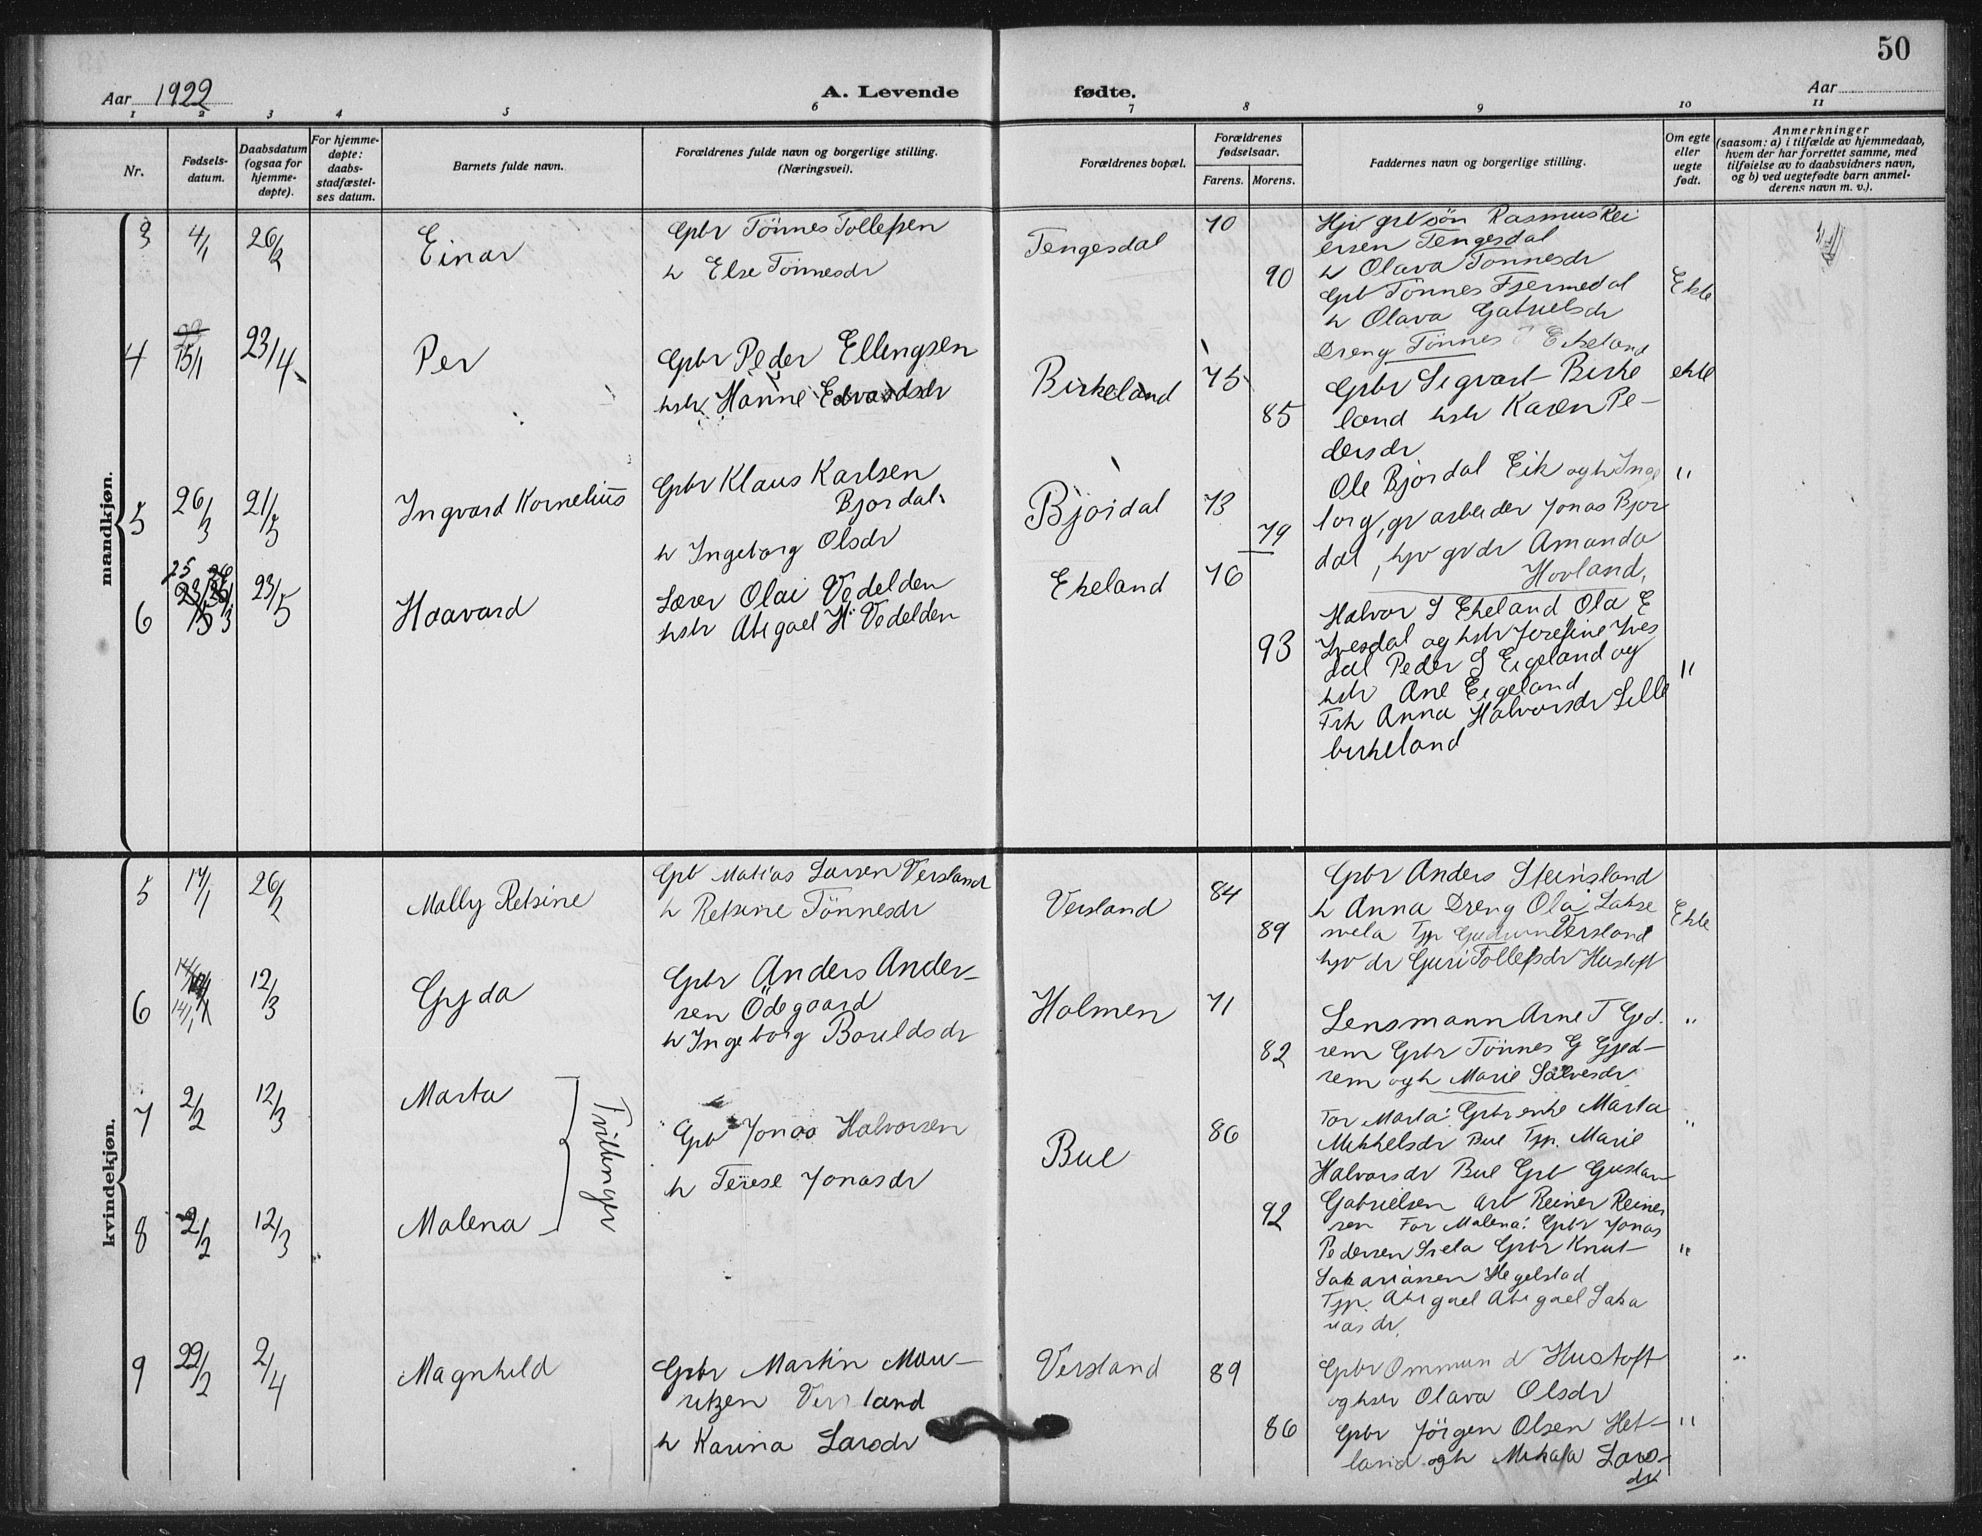 50
Aar 1922
A. Levende fødte.
Aar
1 2 3 4 5 6 7 8 9 10 11
Nr.
Fødsels-
datum.
Daabsdatum
(ogsaa for
hjemme-
døpte).
For hjemme-
døpte:
daabs-
stadfæstel-
ses datum.
Barnets fulde navn.
Forældrenes fulde navn og borgerlige stilling.
(Næringsvei).
Forældrenes bopæl.
Forældrenes
fødselsaar.
Farens. Morens.
Faddernes navn og borgerlige stilling.
Om egte
eller
uegte
født.
Anmerkninger
(saasom: a) i tilfælde av hjemmedaab,
hvem der har forrettet samme, med
tilføielse av to daabsvidners navn,
og b) ved uegtefødte barn anmel-
derens navn m. v.).
mandkjøn.
3 4/1 26/2 Einar
Gpbr Tönnes Tollefsen
h Else Tönnesdr
Tengesdal
70
90
Hjv grb sön Rasmus Rei
ersen Tengesdal
h Olava Tönnesdr
Gpb Tönnes Fjermedal
h Olava Gabrielsdr
Dreng Tönnes Ekeland
Ekte
4 15/1 23/4 Per
Gpbr Peder Ellingsen
hstr Hanne Edvardsdr
Birkeland
75
85
Gpbr Sigvart Birke
land hstr Karen Pe-
dersdr
ekte
5 26/3 21/5 Ingvard Kornelius
Gpbr Klaus Karlsen
Bjordal
h Ingeborg Olsdr
Bjordal
73
79
Ole Bjordal Eik og h Inge
borg, gr arbeider Jonas Bjor
dal, hjv gr dr Amanda
Hovland,
"
6 25 23/5 Haavard
Lærer Olai Vedelden
hstr Abigael H. Vedelden
Ekeland
76
93
Halvor S Ekeland Ola E
Ivesdal og hstr Josefine Ives
dal Peder S Eigeland og
hstr Ane Eigeland
Frk Anna Halvorsdr Lille
birkeland
"
kvindekjøn.
5 17/1 26/2 Mally Retsine
Gpb Matias Larsen Versland
h Retsine Tönnesdr
Versland
84
89
Gpbr Anders Steinsland
h Anna Dreng Ola Lakse
vela Tjp Gudrun Versland
hjv dr Guri Tollefsdr Hustoft
Ekte
6 14/1 12/3 Gyda
Gpbr Anders Ander-
sen Ödegaard
h Ingeborg Bouldsdr
Holmen
71
82
Lensmann Arne T Gjed.
rem Gpbr Tönnes G Gjed-
rem og h Marie Salvesdr
"
7 2/2 12/3 Marta
Tvillinger
Gpb Jonas Halvorsen
h Terese Jonasdr
Bue
86
92
For Marta: Gpbr enke Marta
Mikkelsdr Bue Tjp. Marie
Halvorsdr Bue Gpb Gustav
Gabrielsen arb Reiner Reiner
sen For Malena: Gpbr Jonas
Pedersen Svela Gpbr Knut
Sakariassen Hegelstad
Tjp. Abigael Abigael Saka
riasdr.
"
8 2/2 12/3 Malena
"
9 22/2 2/4 Magnhild
Gpbr Martin Mau-
ritzen Versland
h Karina Larsdr
Versland
89
86
Gpbr Ommund Hustoft
og hstr Olava Olsdr
Gpbr Jörgen Olsen Het-
land og h Mikala Lars-
dr
"